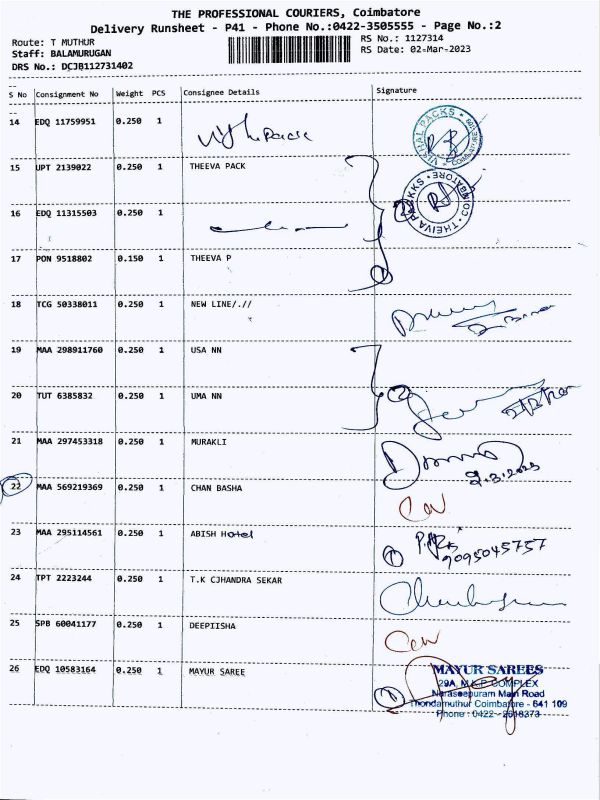 THE PROFESSIONAL COURIERS, Coimbatore
Delivery Runsheet - P41 - Phone No.:0422-3505555 - Page No.:2
Route: T MUTHUR
RS No.: 1127314
Staff: BALAMURUGAN
RS Date: 02-Mar-2023
DRS No.: DCJB112731402
S No Consignment No Weight PCS Consignee Details Signature
14 EDQ 11759951 0.250 1
VISHAL PACKS COIMBATORE
15 UPT 2139022 0.250 1 THEEVA PACK
THEIVA PACKKS COIMBATORE
16 EDQ 11315503 0.250 1
17 PON 9518802 0.150 1 THEEVA P
18 TCG 50338011 0.250 1 NEW LINE/.//
19 MAA 298911760 0.250 1 USA NN
20 TUT 6385832 0.250 1 UMA NN
21 MAA 297453318 0.250 1 MURAKLI
2.3.2023
22 MAA 569219369 0.250 1 CHAN BASHA
23 MAA 295114561 0.250 1 ABISH Hotel
9095045757
24 TPT 2223244 0.250 1 T.K CJHANDRA SEKAR
25 SPB 60041177 0.250 1 DEEPIISHA
26 EDQ 10583164 0.250 1 MAYUR SAREE
MAYUR SAREES
29A, M.K.P. COMPLEX
Naraseepuram Main Road
Thondamuthur Coimbatore - 641 109
Phone : 0422 - 2618373